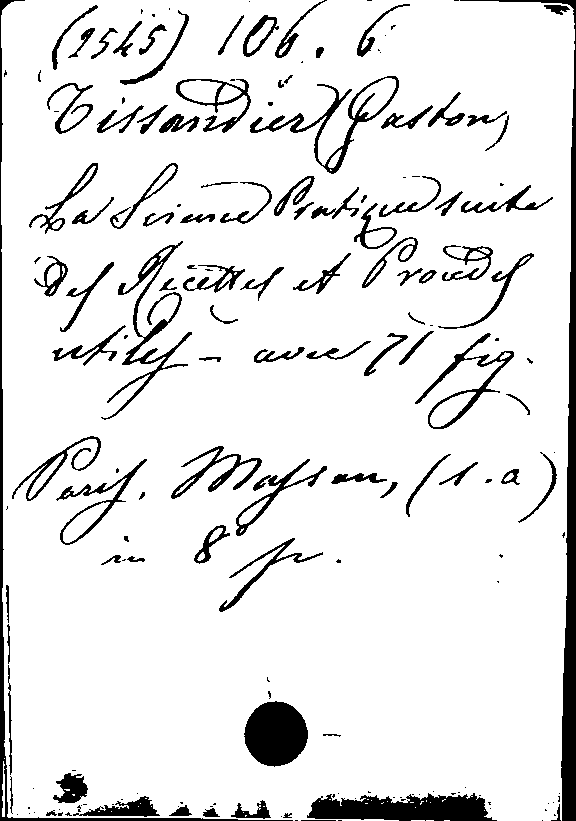 (2545) 106. 6
Tissandier (Gaston)
La Science Pratique suite
des Recettes et Procédés
utiles – avec 71 fig.
Paris, Masson, (s.a)
in 8° p.